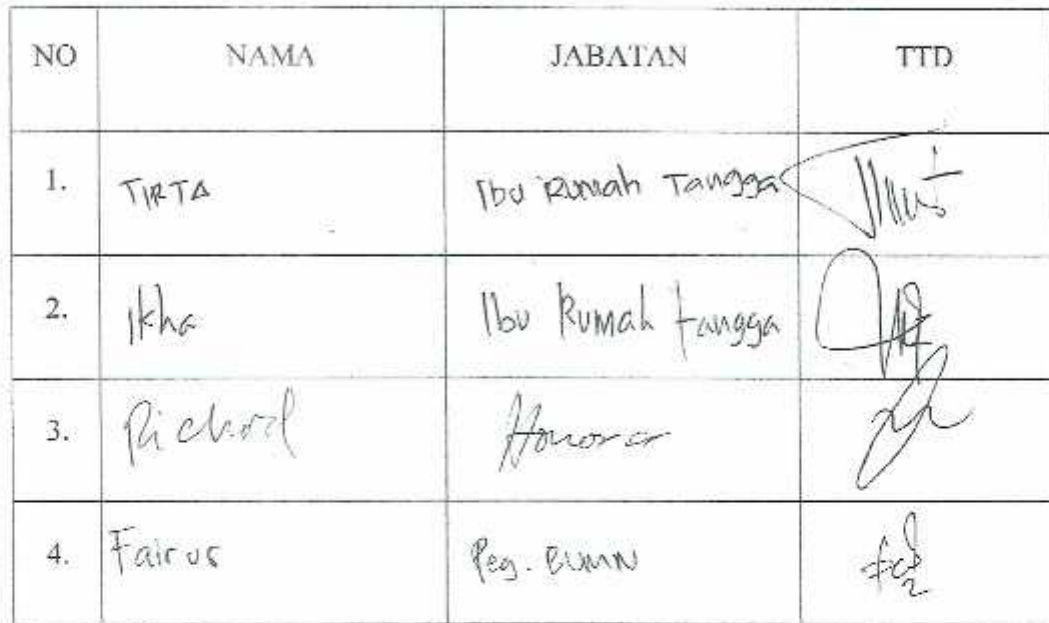 NO NAMA JABATAN TTD
1. TIRTA Ibu Rumah Tangga
2. Ikha Ibu Rumah tangga
3. Richard Honorer
4. Fairus Peg. BUMN